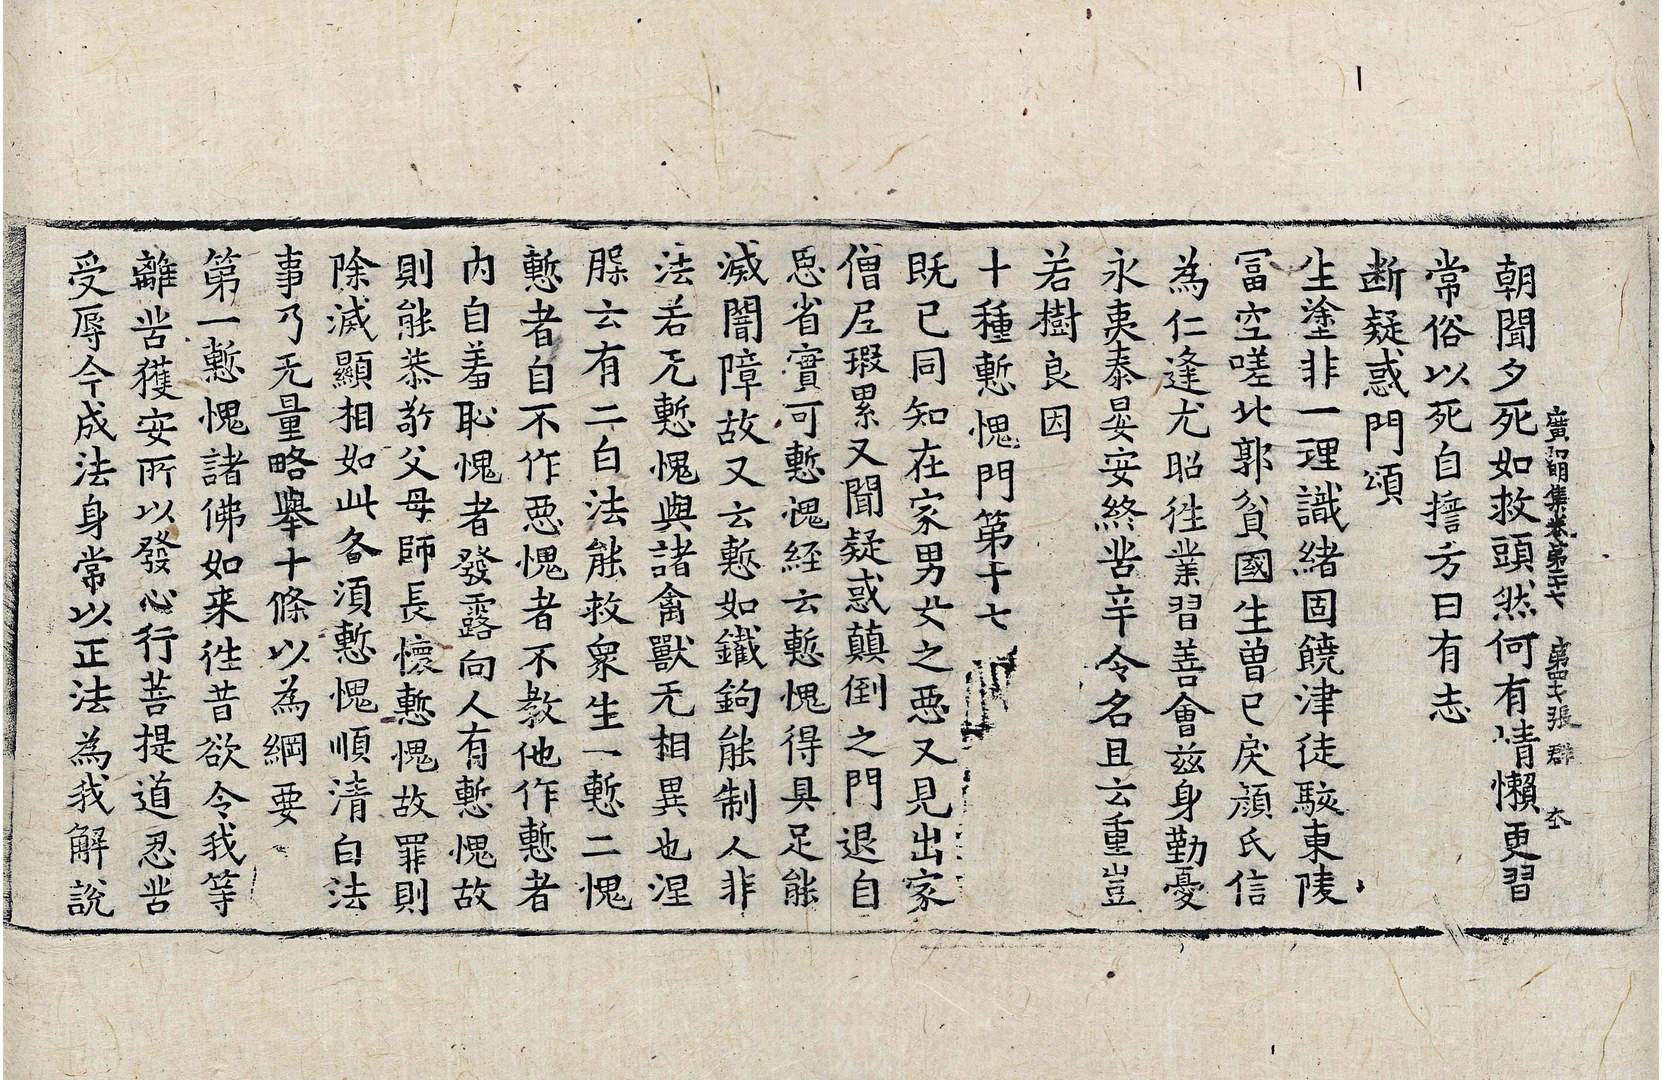 廣弘明集卷第二十七 第四十七張 群
朝聞夕死如救頭然何有情懶更習
常俗以死自誓方曰有志
断疑惑門頌
生塗非一理識緒固饒津徒駭東陵
冨空嗟北郭貧國生曽已戾顔氏信
為仁逢尤昭徃業習善會兹身勤憂
永夷泰晏安終苦辛令名且云重豈
若樹良因
十種慙愧門第十七
既已同知在家男女之惡又見出家
僧尼瑕累又聞疑惑顛倒之門退自
思省實可慙愧経云慙愧得具足能
滅闇障故又云慙如鐵鉤能制人非
法若无慙愧與諸禽獸无相異也涅
槃云有二白法能救衆生一慙二愧
慙者自不作惡愧者不教他作慙者
内自羞恥愧者發露向人有慙愧故
則能恭敬父母師長懷慙愧故罪則
除滅顯相如此各湏慙愧順清白法
事乃无量略舉十條以為綱要
第一慙愧諸佛如来徃昔欲令我等
離苦獲安所以發心行菩提道忍苦
受辱今成法身常以正法為我解説